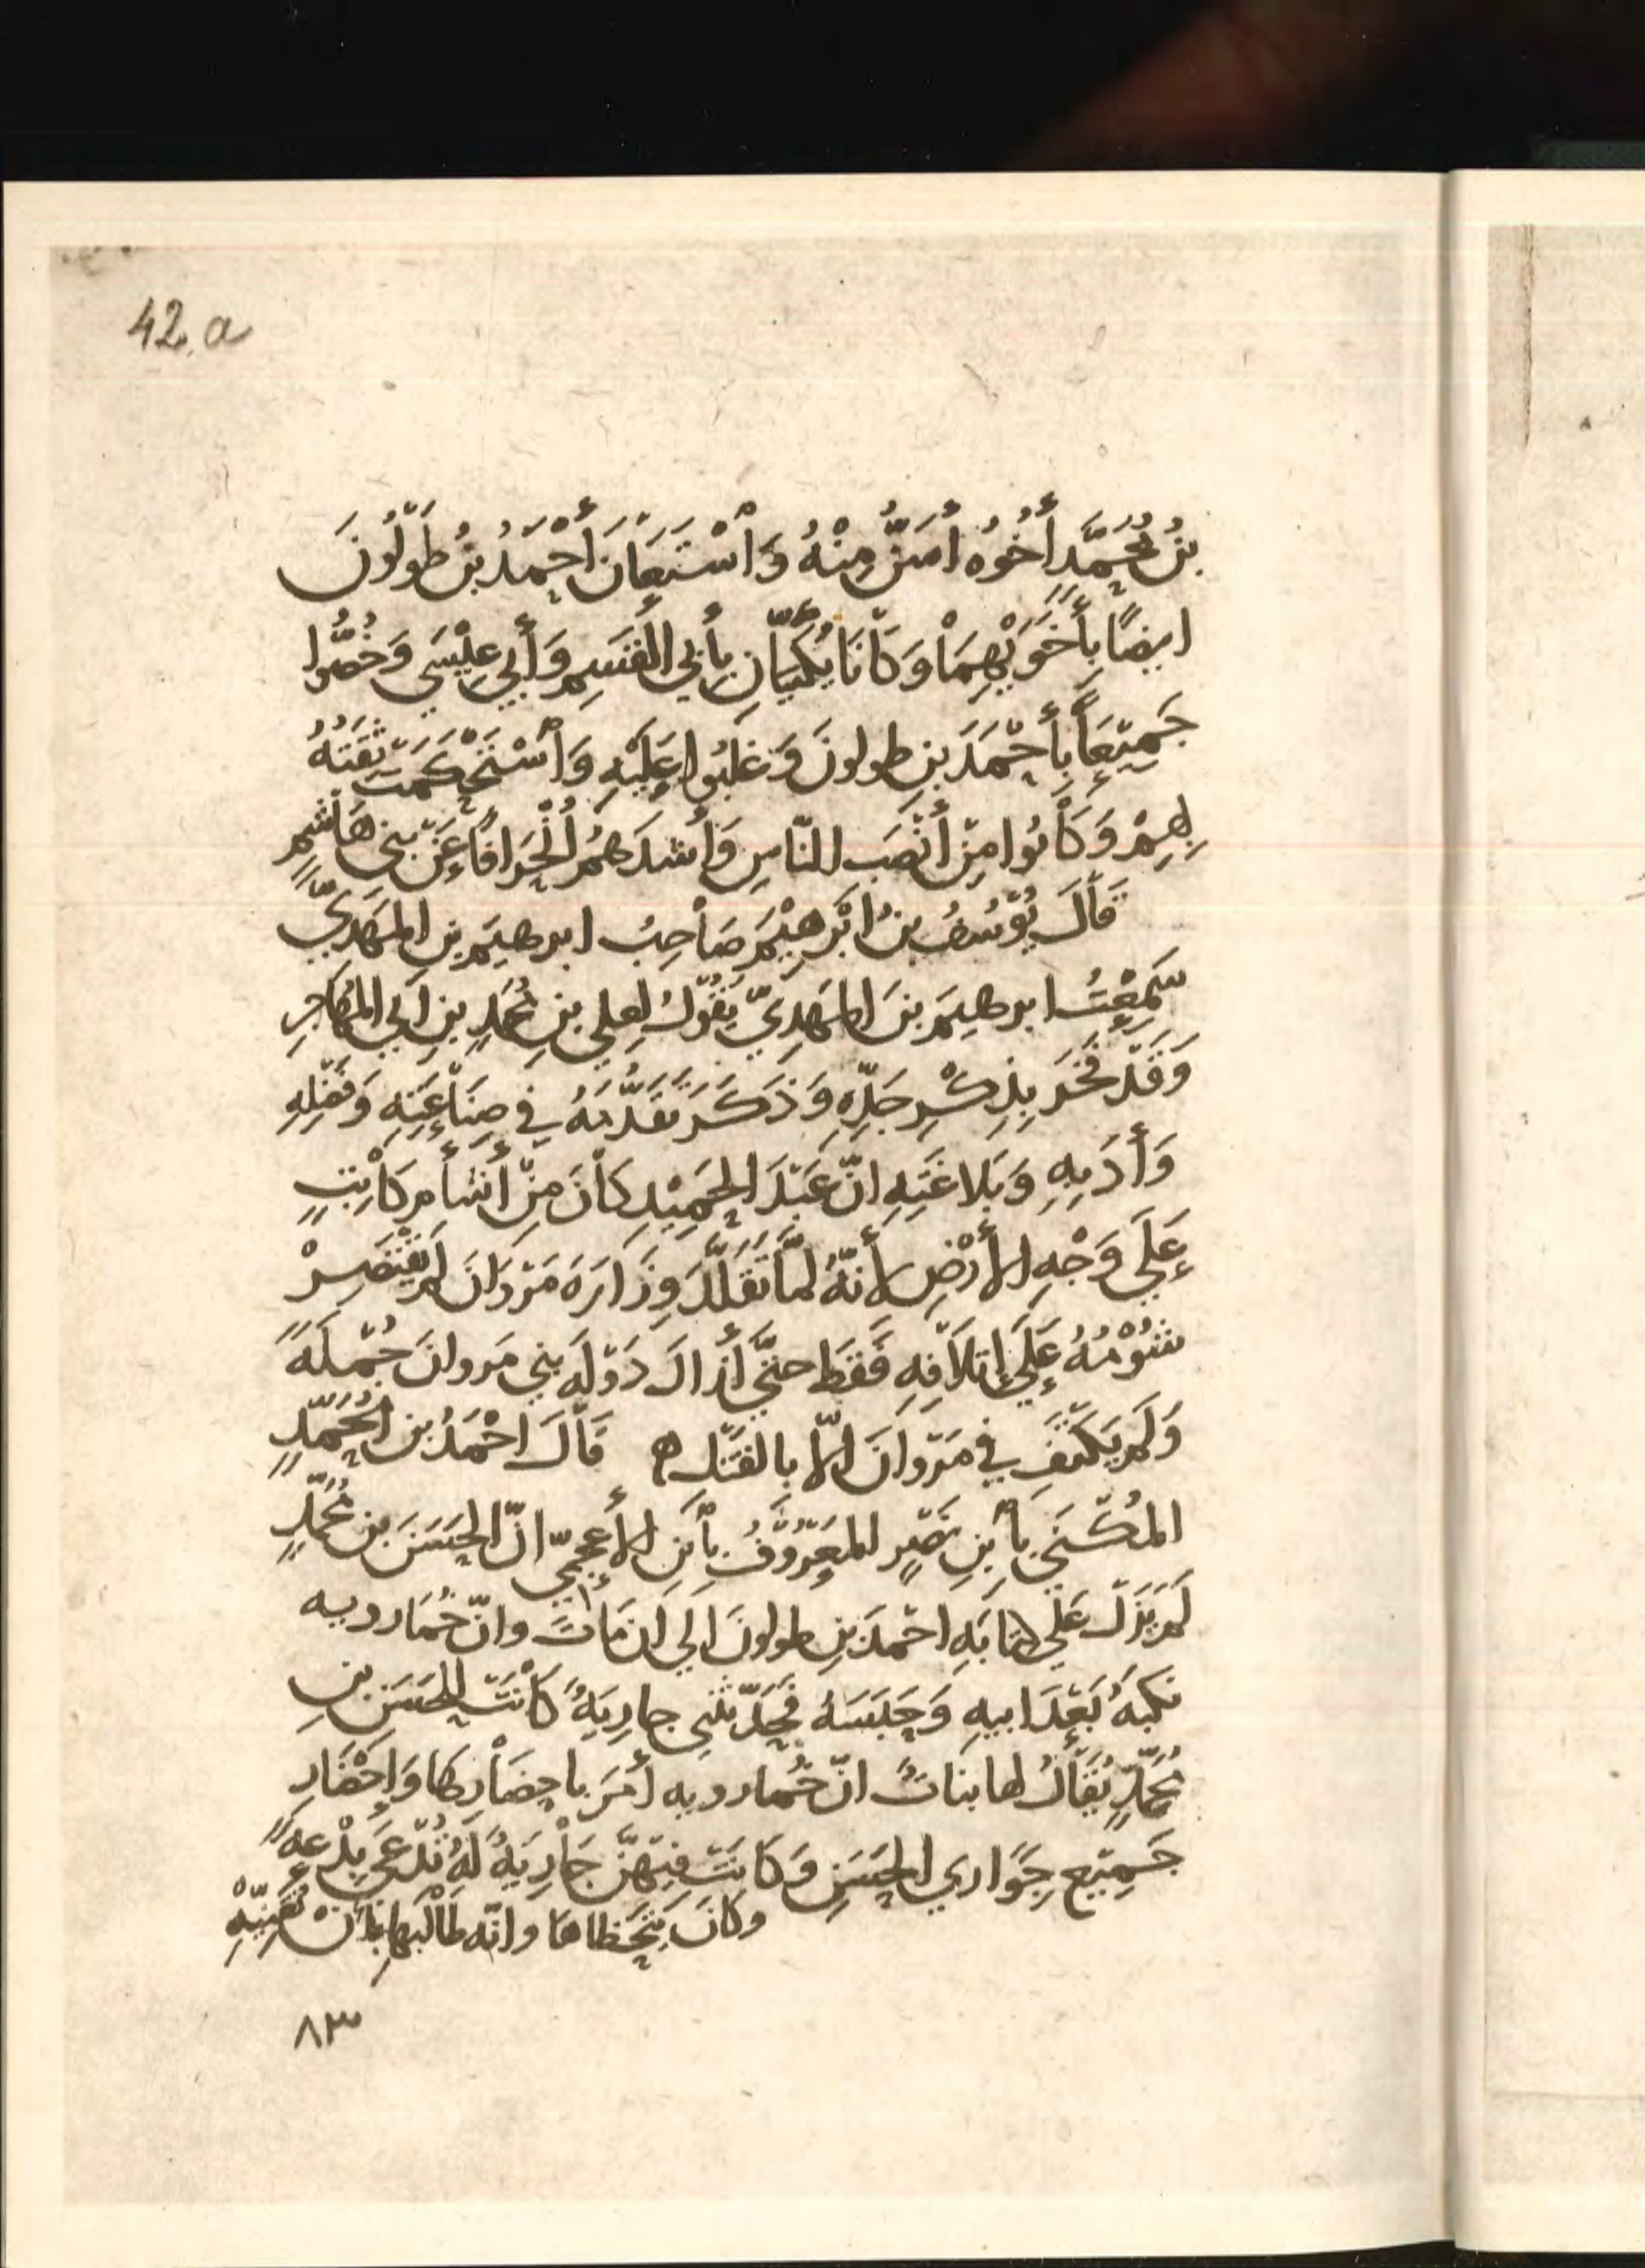 42.a
بنُ مُحَمَّدٍ أَخُوُه أسَنُّ مِنْهُ وَاسْتَعَانَ أَحْمَدُ بنُ طَوْلُونَ
ايضًا بِأَخَوَيْهِمَا وَكَانَا يُكْنَيَانِ بِأَبِي القَسِمِ وَأَبِي عِيْسَى وَخُصُّوا
جَمِيْعًا بِأَحْمَدَ بنِ طولونَ وَغَلَبُوا عَلَيْهِ وَاسْتَحْكَمَتْ ثِقَتَهُ
بِهِمْ وَكَانُوا مِنْ أَنْصَبِ النَّاسِ وَأَشدَهُمُ انْحِرَافًا عَنْ بَنِي هَاشِمٍ
قَالَ يُوْسُفُ بنُ ابْرَهِيْمَ صَاحِبُ ابرهيمَ بنِ المَهْدِيِّ
سَمِعْتُ ابرهيمَ بنَ المَهْدِيِّ يَقُوْلُ لِعلي بنِ مُحَمَدٍ بنِ أبي المُهَاجِرِ
وَقَدْ فَخَرَ بِذِكْرِ جَدِّهِ وَذَكَرَ تَقَدُّمَهُ فِي صِنَاعَتِهِ وَفَضْلِهِ
وَأَدَبِهِ وَبَلاغَتِهِ انَّ عَبْدَ الحَمِيْدِ كَانَ مِنْ أَشأَمِ كَاتِبٍ
عَلَى وَجْهِ الأَرْضِ لأَنَّهُ لمَّا تَقَلَّدَ وِزَارَةَ مَرْوَانَ لَمْ يَقْتَصِرْ
شُؤْمُهُ عَلَى إِتلاَفِهِ فَقَط حتَّى أَزالَ دَوْلَةَ بني مَروانَ جُمْلَةً
وَلَم يَكْتَفِ فِي مَرْوانَ الاَّ بالقَتْلِ ه قَالَ احْمَدُ بن مُحَمَّدٍ
المُكْنَى بِابنِ نَصْرٍ المَعْرُوفُ بابَنِ الأَعجميّ انّ الحَسَنَ بن مُحَمَّدٍ
لَمْ يَزَلْ عَلى كِتَابَةِ احْمدَ بنِ طولونَ الَى أَن مَاتَ وانّ خُمَارويه
نَكَبَهُ بَعْدَ ابيهِ وَحَبَسَهُ فَحَدَّثَنِي جارِيَةٌ كَانَتْ لِلحَسَنِ بنِ
مُحَمَّدٍ يُقَالُ لها بنَاتُ انّ خُمارويه أمَرَ باحِضَارِهَا وَاِحْضَارِ
جَمِيْعِ جَوَارِي الحَسَنِ وَكَانَتْ فِيْهِنَّ جَارِيَةٌ لَهُ تُدْعَى بِدْعَة
وَكَانَ يَتَحَظَاهَا وانّه طَالَبَها بِأَن تُغَنِّيَهُ
٨٣